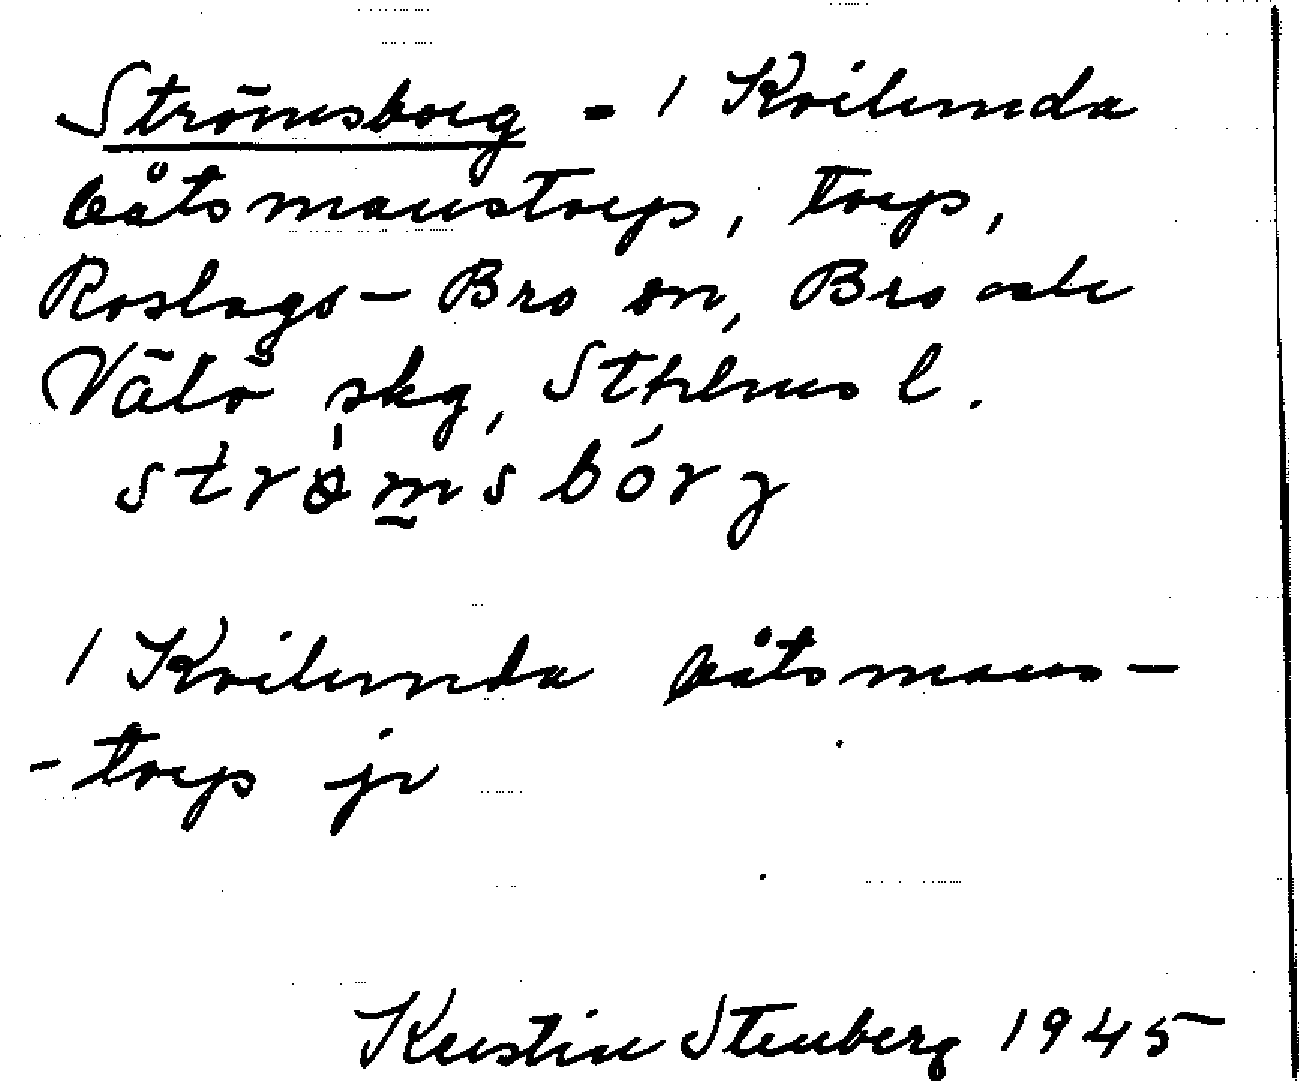 Strömsborg = 1 Kvilunda
båtsmanstorp, torp,
Roslags-Bro sn, Bro och
Vätö skg, Sthlms l.
strømsbórg
1 Kvilunda båtsmans-
-torp jr
Kerstin Stenberg 1945